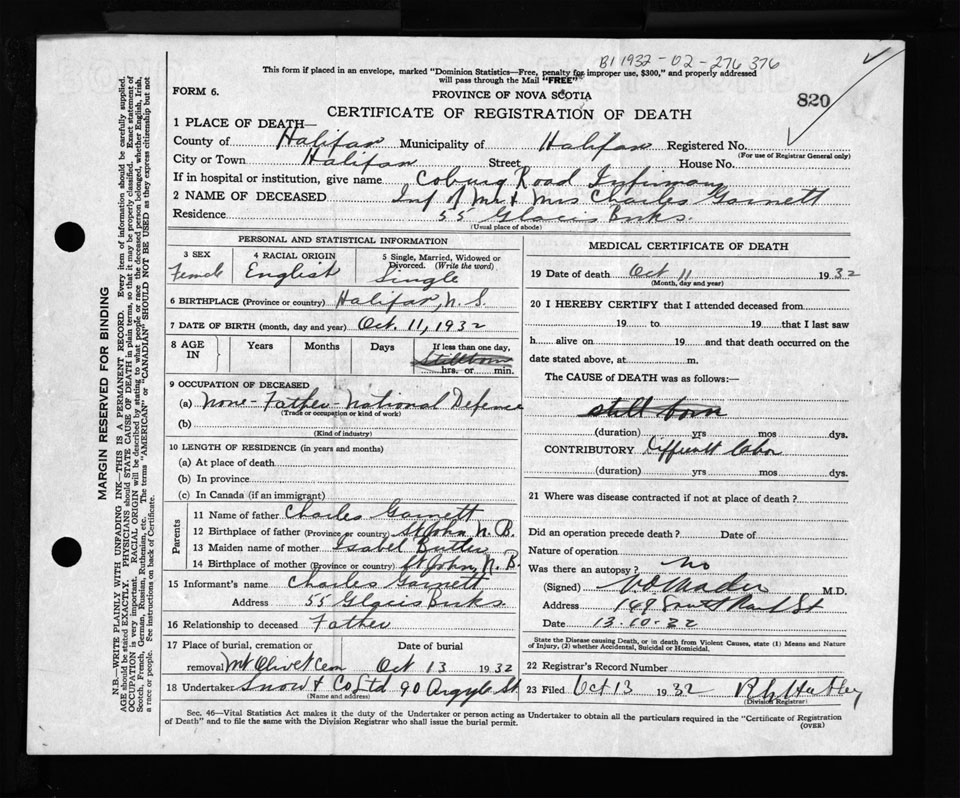 B1 1932-02-276 376
This form if placed in an envelope, marked "Dominion Statistics—Free, penalty for improper use, $300," and properly addressed
will pass through the Mail "FREE"
FORM 6.
PROVINCE OF NOVA SCOTIA
820
CERTIFICATE OF REGISTRATION OF DEATH
1 PLACE OF DEATH—
County of Halifax Municipality of Halifax Registered No.
(For use of Registrar General only)
City or Town Halifax Street House No.
If in hospital or institution, give name Coburg Road Infirmary
2 NAME OF DECEASED Inf of Mr & Mrs Charles Garnett
Residence 55 Glacis Bcks.
(Usual place of abode)
PERSONAL AND STATISTICAL INFORMATION
3 SEX Female
4 RACIAL ORIGIN English
5 Single, Married, Widowed or Divorced. (Write the word) Single
6 BIRTHPLACE (Province or country) Halifax, N. S.
7 DATE OF BIRTH (month, day and year) Oct. 11, 1932
8 AGE IN Years Months Days If less than one day, Stillborn hrs. or min.
9 OCCUPATION OF DECEASED
(a) None - Father - National Defence
(Trade or occupation or kind of work)
(b)
(Kind of industry)
10 LENGTH OF RESIDENCE (in years and months)
(a) At place of death
(b) In province
(c) In Canada (if an immigrant)
Parents
11 Name of father Charles Garnett
12 Birthplace of father (Province or country) St John N. B.
13 Maiden name of mother Isabel Butler
14 Birthplace of mother (Province or country) St John, N. B.
15 Informant's name Charles Garnett
Address 55 Glacis Bcks.
16 Relationship to deceased Father
17 Place of burial, cremation or removal Mt Olivet Cem Date of burial Oct 13 1932
18 Undertaker Snow & Co Ltd 90 Argyle St.
(Name and address)
MEDICAL CERTIFICATE OF DEATH
19 Date of death Oct 11 1932
(Month, day and year)
20 I HEREBY CERTIFY that I attended deceased from
19 to 19 that I last saw
h alive on 19 and that death occurred on the
date stated above, at m.
The CAUSE of DEATH was as follows:—
still born
(duration) yrs mos dys.
CONTRIBUTORY Difficult labor
(duration) yrs mos dys.
21 Where was disease contracted if not at place of death?
Did an operation precede death? Date of
Nature of operation
Was there an autopsy? No
(Signed) Mader M.D.
Address 149 St
Date 13-10-32
State the Disease causing Death, or in death from Violent Causes, state (1) Means and Nature
of Injury, (2) whether Accidental, Suicidal or Homicidal.
22 Registrar's Record Number
23 Filed Oct 13 1932
(Division Registrar)
Sec. 46—Vital Statistics Act makes it the duty of the Undertaker or person acting as Undertaker to obtain all the particulars required in the "Certificate of Registration
of Death" and to file the same with the Division Registrar who shall issue the burial permit.
(OVER)
MARGIN RESERVED FOR BINDING
N.B.—WRITE PLAINLY WITH UNFADING INK—THIS IS A PERMANENT RECORD. Every item of information should be carefully supplied.
AGE should be stated EXACTLY. PHYSICIANS should STATE CAUSE OF DEATH in plain terms, so that it may be properly classified. Exact statement of
OCCUPATION is very important. RACIAL ORIGIN will be described by stating to what people or race the deceased person belonged, whether English, Irish,
Scotch, French, German, Russian, Ruthenian, etc. The terms "AMERICAN" or "CANADIAN" SHOULD NOT BE USED as they express citizenship but not
a race or people. See instructions on back of Certificate.